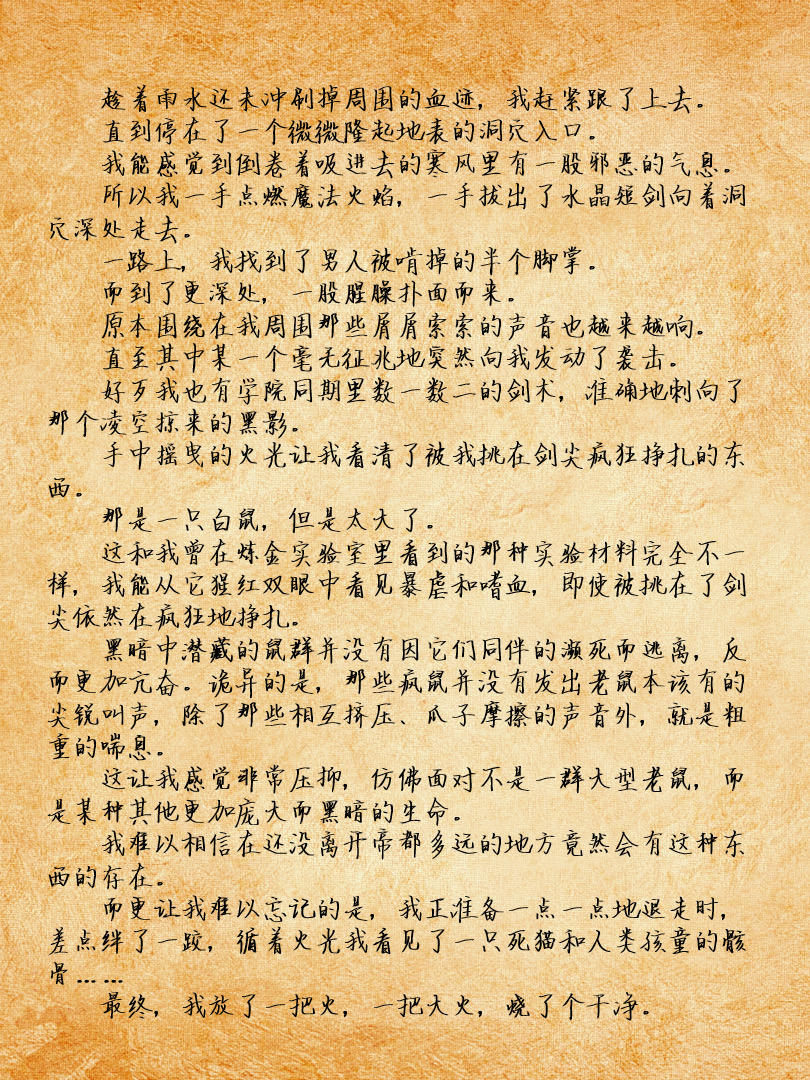 趁着雨水还未冲刷掉周围的血迹，我赶紧跟了上去。
直到停在了一个微微隆起地表的洞穴入口。
我能感觉到倒卷着吸进去的寒风里有一股邪恶的气息。
所以我一手点燃魔法火焰，一手拔出了水晶短剑向着洞
穴深处走去。
一路上，我找到了男人被啃掉的半个脚掌。
而到了更深处，一股腥臊扑面而来。
原本围绕在我周围那些屑屑索索的声音也越来越响。
直至其中某一个毫无征兆地突然向我发动了袭击。
好歹我也有学院同期里数一数二的剑术，准确地刺向了
那个凌空掠来的黑影。
手中摇曳的火光让我看清了被我挑在剑尖疯狂挣扎的东
西。
那是一只白鼠，但是太大了。
这和我曾在炼金实验室里看到的那种实验材料完全不一
样，我能从它猩红双眼中看见暴虐和嗜血，即使被挑在了剑
尖依然在疯狂地挣扎。
黑暗中潜藏的鼠群并没有因它们同伴的濒死而逃离，反
而更加亢奋。诡异的是，那些疯鼠并没有发出老鼠本该有的
尖锐叫声，除了那些相互挤压、爪子摩擦的声音外，就是粗
重的喘息。
这让我感觉非常压抑，仿佛面对不是一群大型老鼠，而
是某种其他更加庞大而黑暗的生命。
我难以相信在还没离开帝都多远的地方竟然会有这种东
西的存在。
而更让我难以忘记的是，我正准备一点一点地退走时，
差点绊了一跤，循着火光我看见了一只死猫和人类孩童的骸
骨……
最终，我放了一把火，一把大火，烧了个干净。